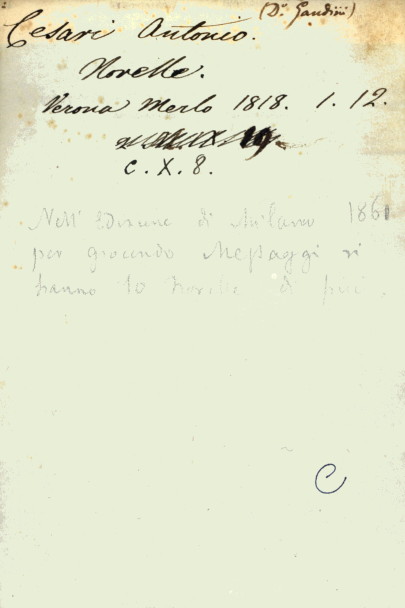 (Dr. Gandini)
Cesari Antonio.
Novelle.
Verona Merlo 1818. 1. 12.
19.
C. X. 8.
Nell' Edizione di Milano 1861
per giocondo Messaggi vi
hanno 10 Novelle di più.
C